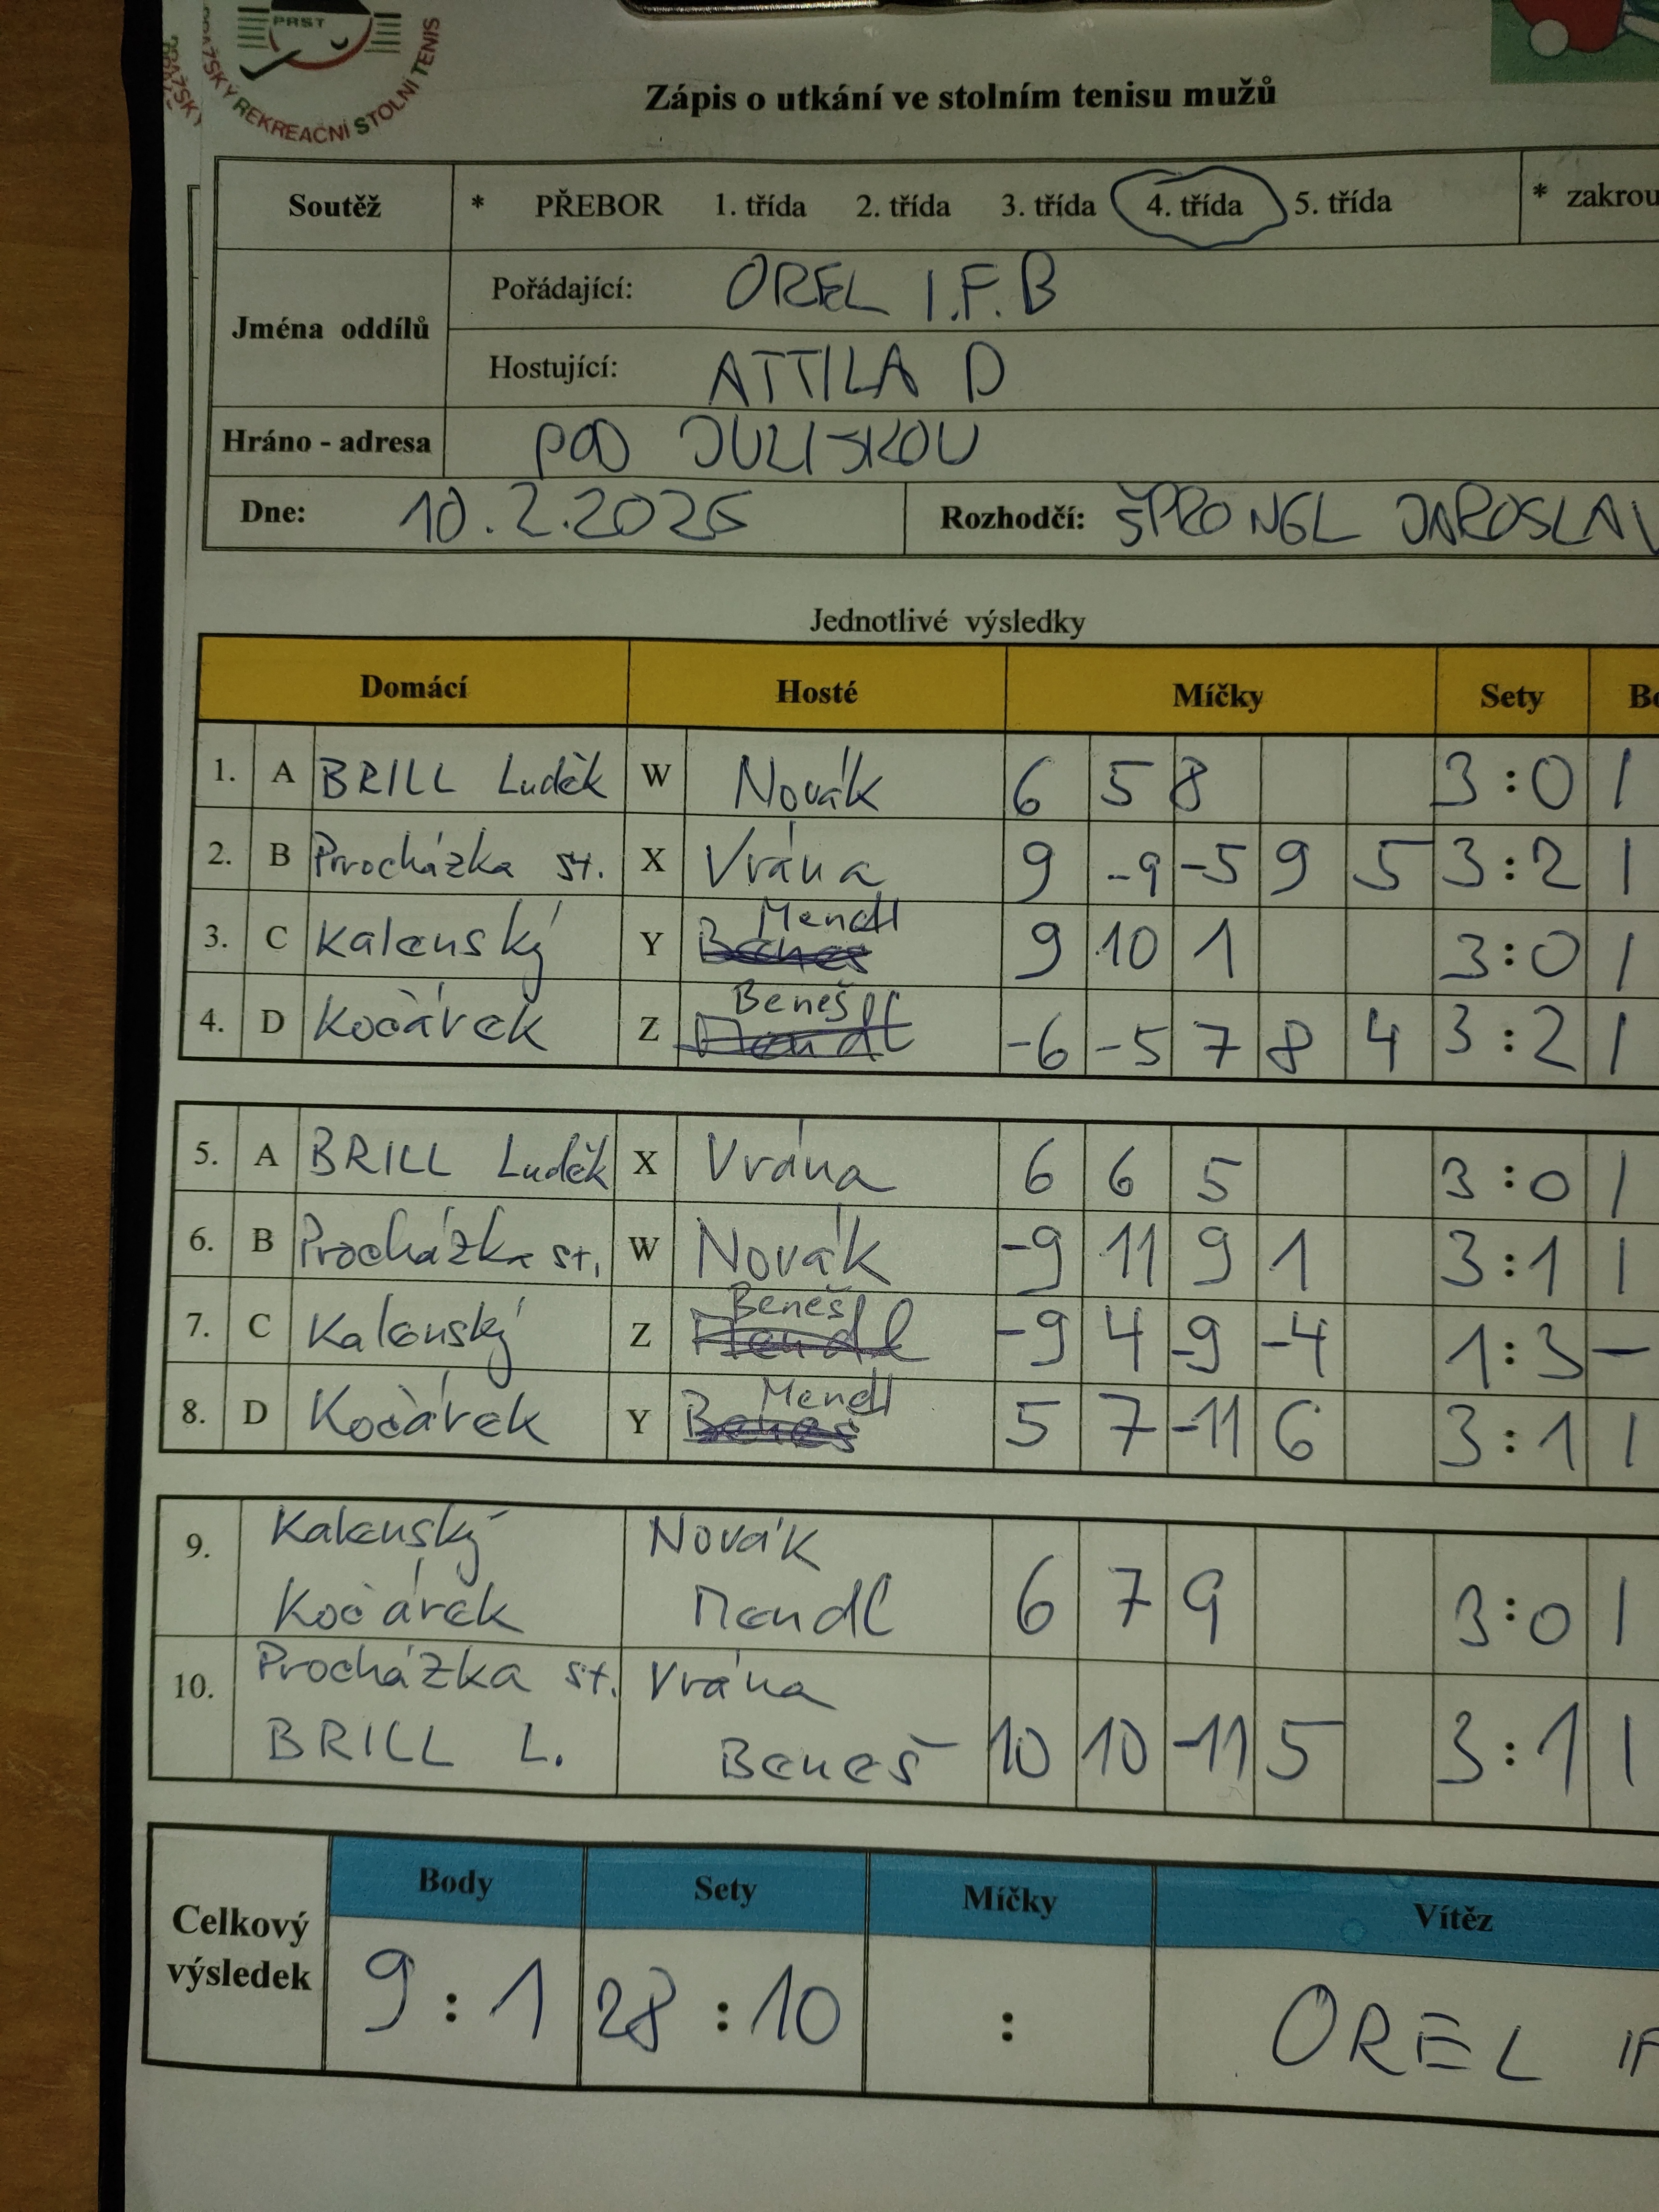 PRST
PRAŽSKÝ REKREAČNÍ STOLNÍ TENIS
Zápis o utkání ve stolním tenisu mužů
Soutěž * PŘEBOR 1. třída 2. třída 3. třída 4. třída 5. třída * zakrou
Jména oddílů
Pořádající: OREL I.F.B
Hostující: ATTILA D
Hráno - adresa POD JULISKOU
Dne: 10.2.2026 Rozhodčí: ŠPRONGL JAROSLAV
Jednotlivé výsledky
Domácí Hosté Míčky Sety Bo
1. A BRILL Luděk W Novák 6 5 8 3:0 1
2. B Procházka st. X Vrána 9 -9 -5 9 5 3:2 1
3. C Kalenský Y Beneš Mendl 9 10 1 3:0 1
4. D Kočárek Z Mendl Beneš -6 -5 7 8 4 3:2 1
5. A BRILL Luděk X Vrána 6 6 5 3:0 1
6. B Procházka st. W Novák -9 11 9 1 3:1 1
7. C Kalenský Z Mendl Beneš -9 4 -9 -4 1:3 -
8. D Kočárek Y Beneš Mendl 5 7 -11 6 3:1 1
9. Kalenský Novák
Kočárek Mendl 6 7 9 3:0 1
10. Procházka st. Vrána
BRILL L. Beneš 10 10 -11 5 3:1 1
Celkový výsledek
Body Sety Míčky Vítěz
9:1 28:10 : OREL IF